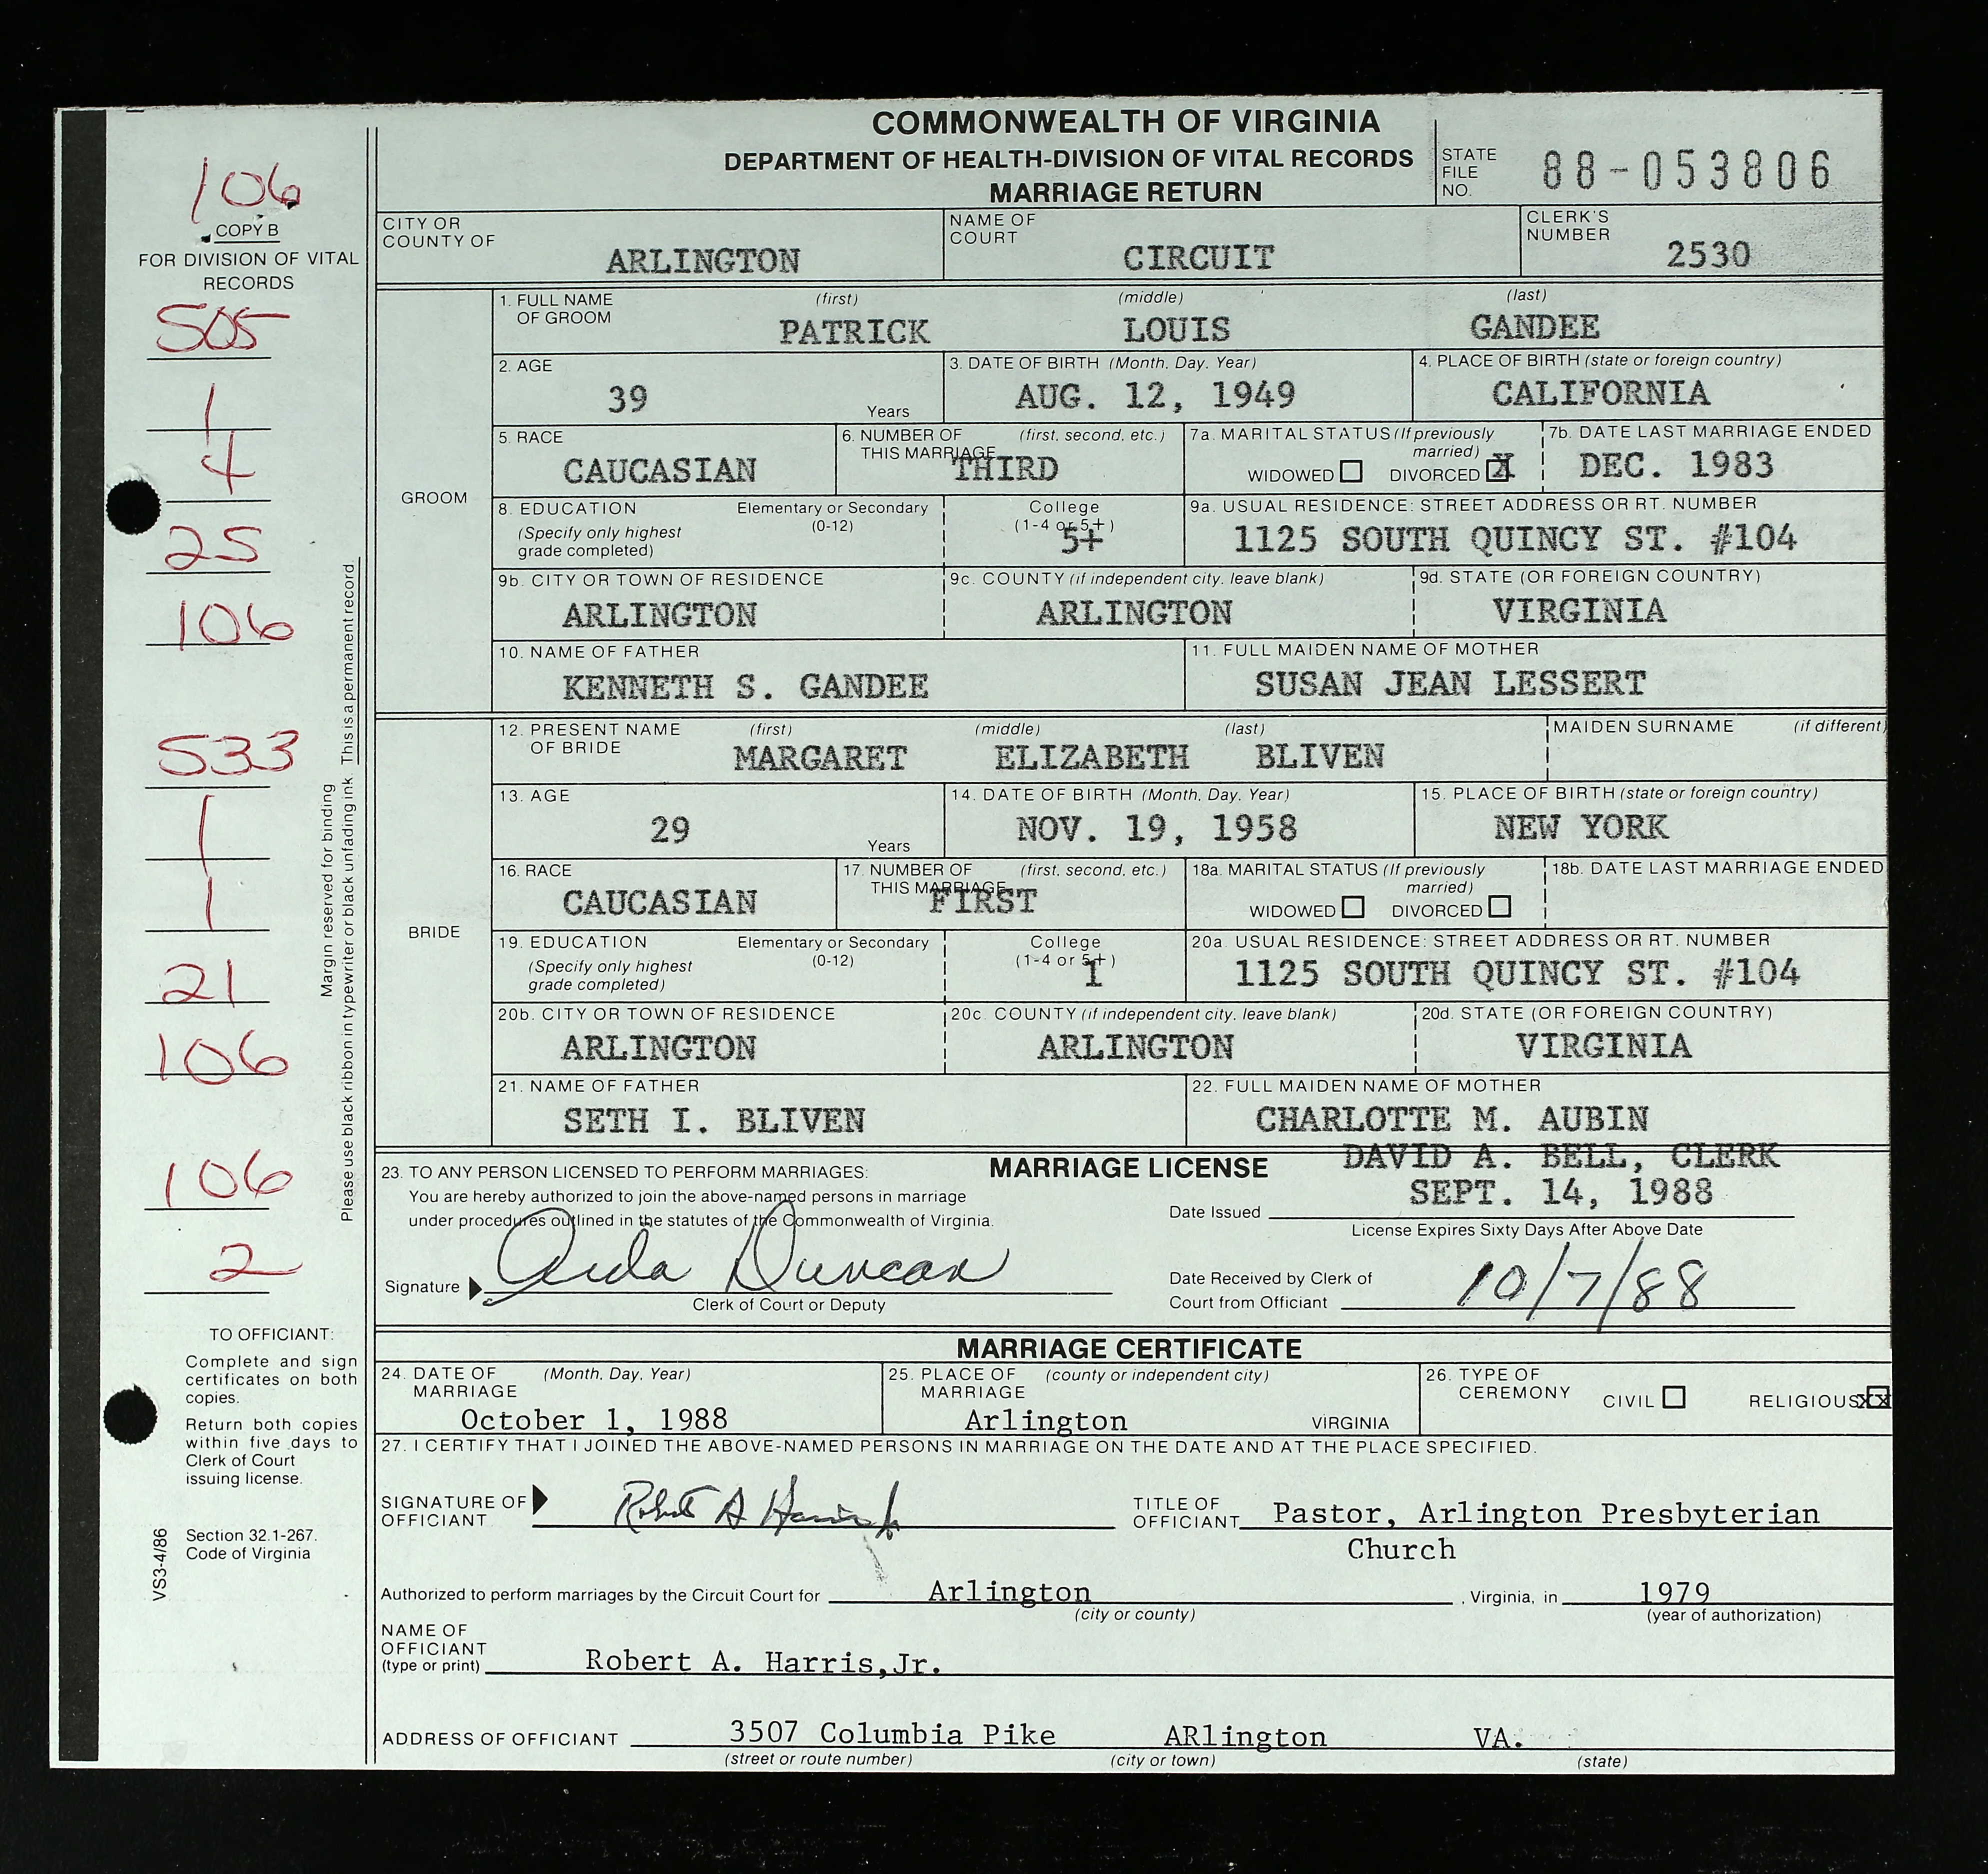 COMMONWEALTH OF VIRGINIA
DEPARTMENT OF HEALTH-DIVISION OF VITAL RECORDS
MARRIAGE RETURN
STATE FILE NO. 88-053806
106
COPY B
FOR DIVISION OF VITAL RECORDS
505
1
4
25
106
533
1
1
21
106
106
2
Margin reserved for binding
Please use black ribbon in typewriter or black unfading ink This is a permanent record.
TO OFFICIANT:
Complete and sign
certificates on both
copies.
Return both copies
within five days to
Clerk of Court
issuing license.
Section 32.1-267.
Code of Virginia
VS3-4/86
CITY OR COUNTY OF ARLINGTON
NAME OF COURT CIRCUIT
CLERK'S NUMBER 2530
GROOM
1. FULL NAME OF GROOM (first) PATRICK (middle) LOUIS (last) GANDEE
2. AGE 39 Years
3. DATE OF BIRTH (Month, Day, Year) AUG. 12, 1949
4. PLACE OF BIRTH (state or foreign country) CALIFORNIA
5. RACE CAUCASIAN
6. NUMBER OF THIS MARRIAGE (first, second, etc.) THIRD
7a. MARITAL STATUS (If previously married) WIDOWED DIVORCED X
7b. DATE LAST MARRIAGE ENDED DEC. 1983
8. EDUCATION (Specify only highest grade completed) Elementary or Secondary (0-12) College (1-4 or 5+) 5+
9a. USUAL RESIDENCE: STREET ADDRESS OR RT. NUMBER 1125 SOUTH QUINCY ST. #104
9b. CITY OR TOWN OF RESIDENCE ARLINGTON
9c. COUNTY (if independent city, leave blank) ARLINGTON
9d. STATE (OR FOREIGN COUNTRY) VIRGINIA
10. NAME OF FATHER KENNETH S. GANDEE
11. FULL MAIDEN NAME OF MOTHER SUSAN JEAN LESSERT
BRIDE
12. PRESENT NAME OF BRIDE (first) MARGARET (middle) ELIZABETH (last) BLIVEN
MAIDEN SURNAME (if different)
13. AGE 29 Years
14. DATE OF BIRTH (Month, Day, Year) NOV. 19, 1958
15. PLACE OF BIRTH (state or foreign country) NEW YORK
16. RACE CAUCASIAN
17. NUMBER OF THIS MARRIAGE (first, second, etc.) FIRST
18a. MARITAL STATUS (If previously married) WIDOWED DIVORCED
18b. DATE LAST MARRIAGE ENDED
19. EDUCATION (Specify only highest grade completed) Elementary or Secondary (0-12) College (1-4 or 5+) 1
20a. USUAL RESIDENCE: STREET ADDRESS OR RT. NUMBER 1125 SOUTH QUINCY ST. #104
20b. CITY OR TOWN OF RESIDENCE ARLINGTON
20c. COUNTY (if independent city, leave blank) ARLINGTON
20d. STATE (OR FOREIGN COUNTRY) VIRGINIA
21. NAME OF FATHER SETH I. BLIVEN
22. FULL MAIDEN NAME OF MOTHER CHARLOTTE M. AUBIN
DAVID A. BELL, CLERK
23. TO ANY PERSON LICENSED TO PERFORM MARRIAGES: MARRIAGE LICENSE
You are hereby authorized to join the above-named persons in marriage
under procedures outlined in the statutes of the Commonwealth of Virginia.
Date Issued SEPT. 14, 1988
License Expires Sixty Days After Above Date
Signature Aida Duncan
Clerk of Court or Deputy
Date Received by Clerk of
Court from Officiant 10/7/88
MARRIAGE CERTIFICATE
24. DATE OF MARRIAGE (Month, Day, Year) October 1, 1988
25. PLACE OF MARRIAGE (county or independent city) Arlington VIRGINIA
26. TYPE OF CEREMONY CIVIL RELIGIOUS XX
27. I CERTIFY THAT I JOINED THE ABOVE-NAMED PERSONS IN MARRIAGE ON THE DATE AND AT THE PLACE SPECIFIED.
SIGNATURE OF OFFICIANT Robert A Harris Jr
TITLE OF OFFICIANT Pastor, Arlington Presbyterian
Church
Authorized to perform marriages by the Circuit Court for Arlington, Virginia, in 1979
(city or county) (year of authorization)
NAME OF OFFICIANT (type or print) Robert A. Harris,Jr.
ADDRESS OF OFFICIANT 3507 Columbia Pike ARlington VA.
(street or route number) (city or town) (state)